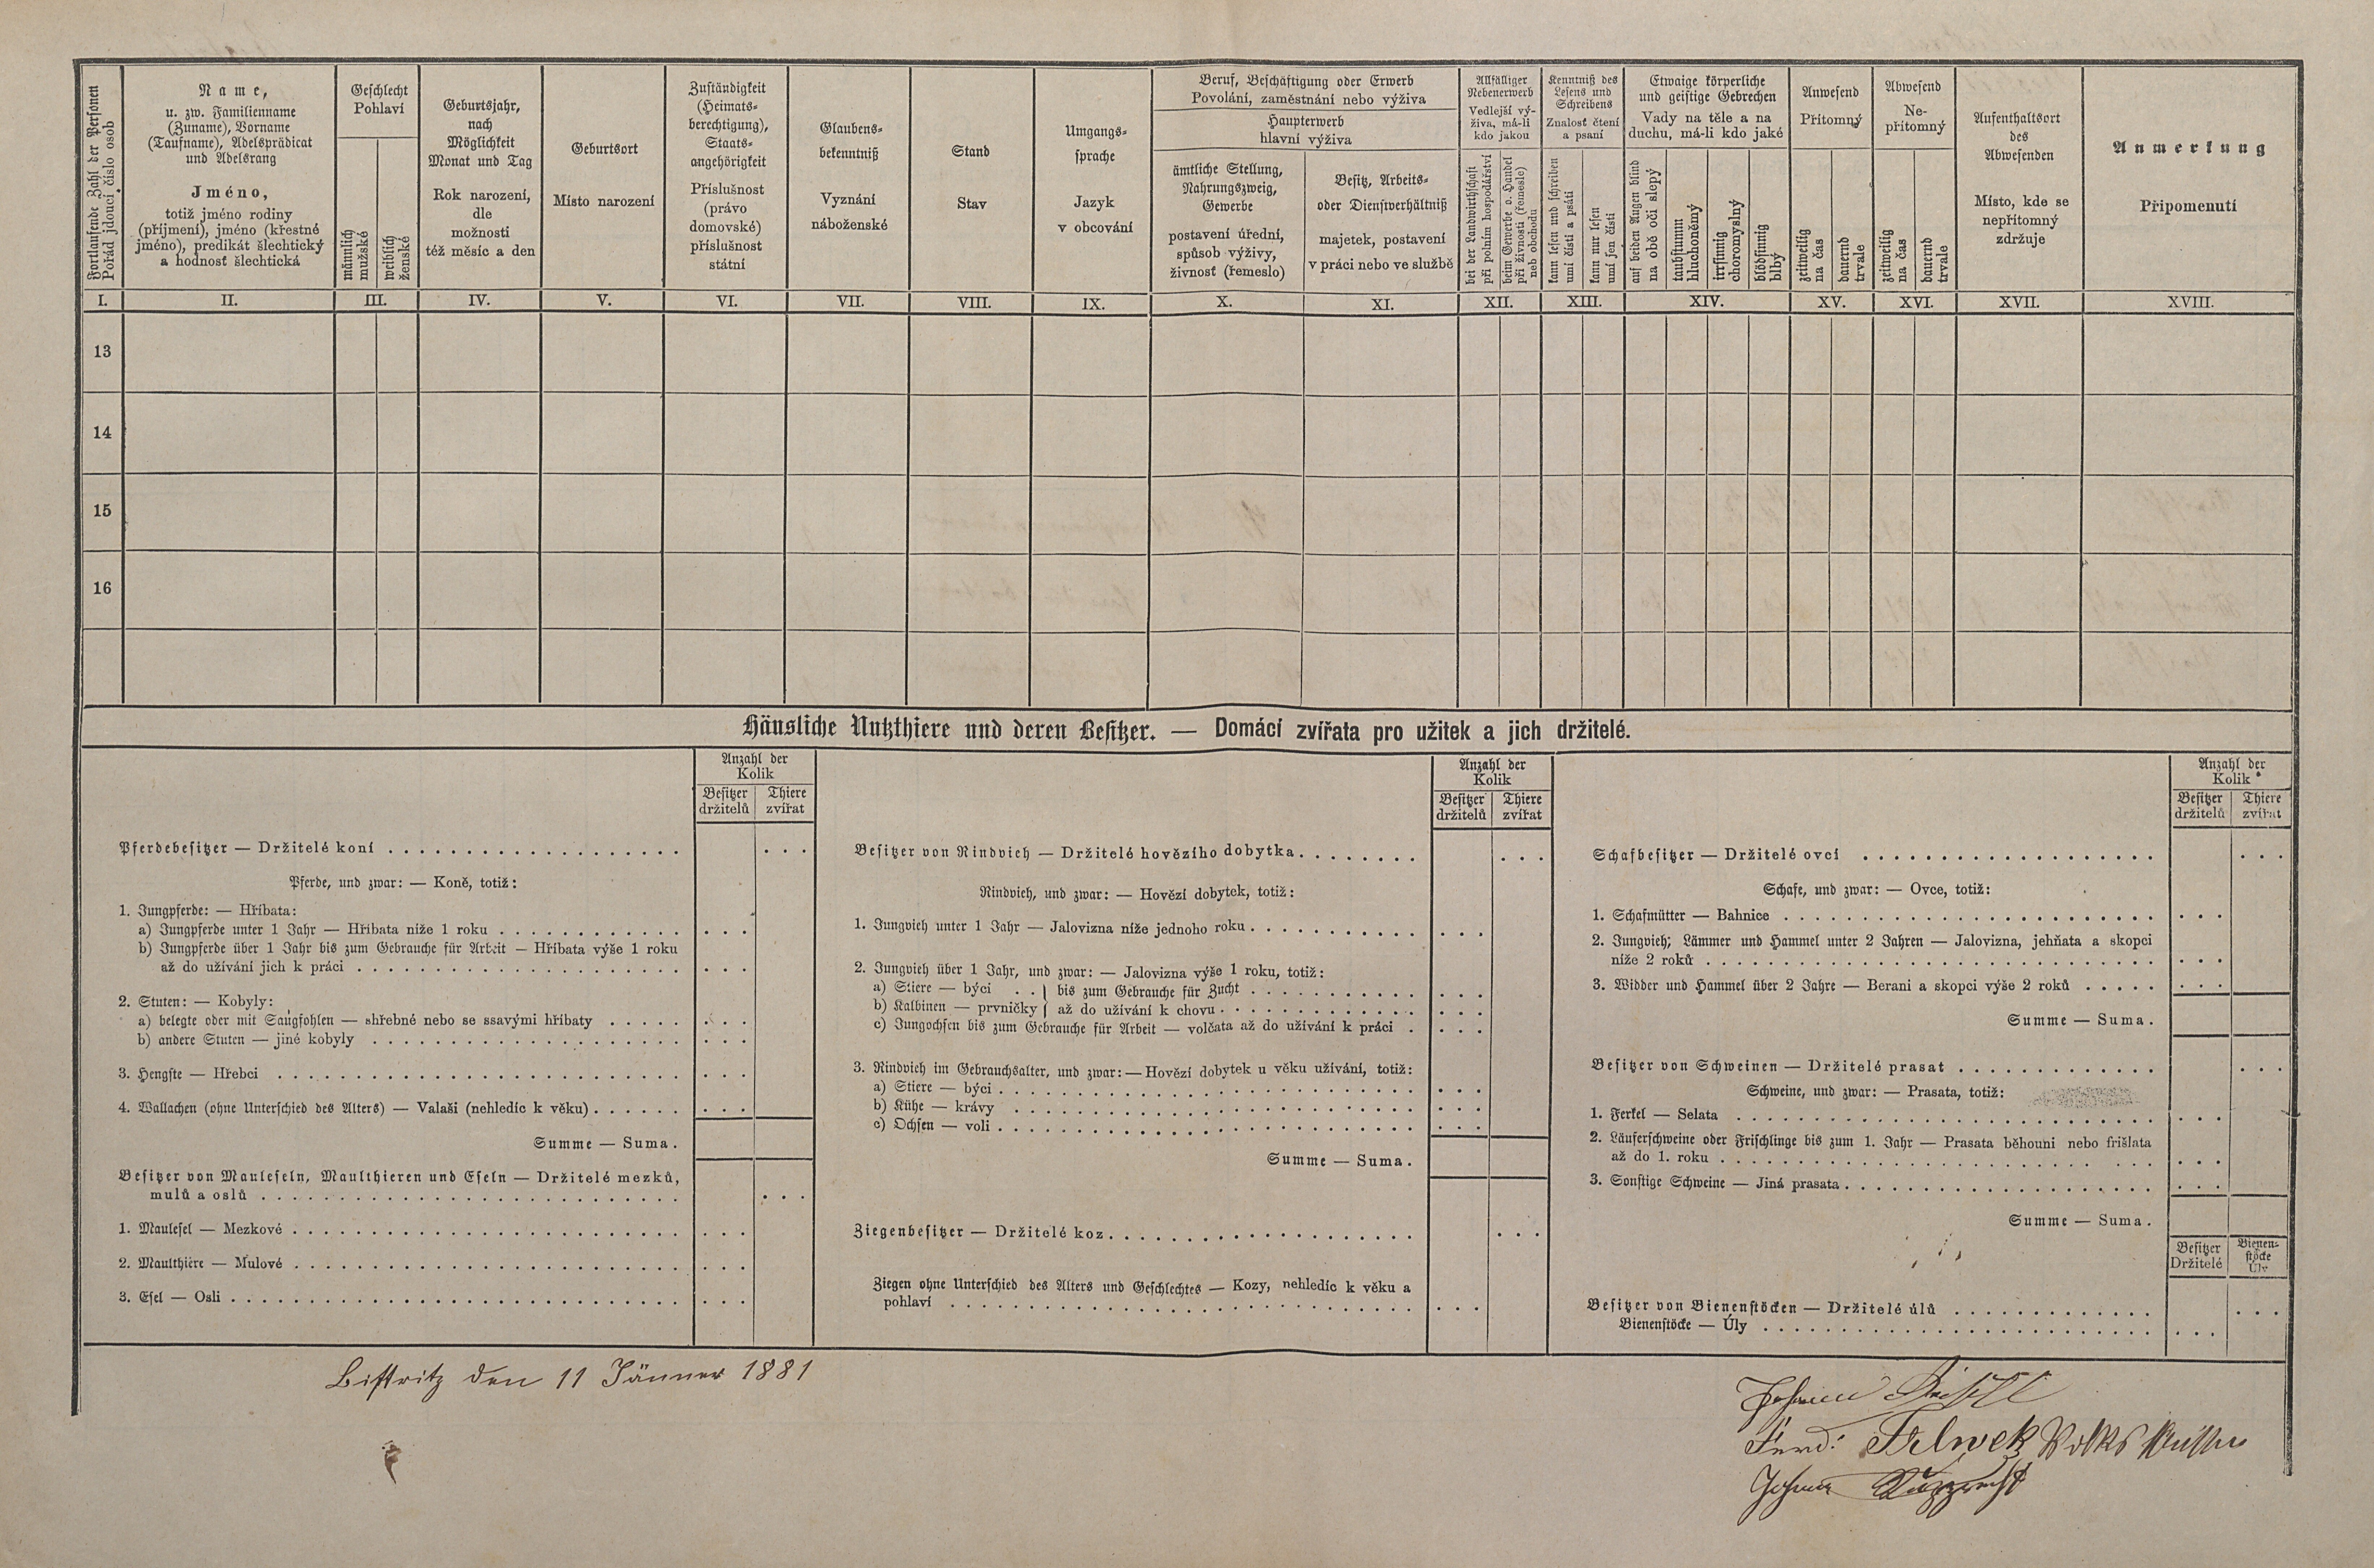 Fortlaufende Zahl der Personen
Pořád jdoucí číslo osob
Name,
u. zw. Familienname
(Zuname), Vorname
(Taufname), Adelsprädicat
und Adelsrang
Jméno,
totiž jméno rodiny
(příjmení), jméno (křestné
jméno), predikát šlechtický
a hodnosť šlechtická
Geschlecht
Pohlaví
männlich
mužské
weiblich
ženské
Geburtsjahr,
nach
Möglichkeit
Monat und Tag
Rok narození,
dle
možnosti
též měsíc a den
Geburtsort
Místo narození
Zuständigkeit
(Heimats-
berechtigung),
Staats-
angehörigkeit
Příslušnost
(právo
domovské)
příslušnost
státní
Glaubens-
bekenntniß
Vyznání
náboženské
Stand
Stav
Umgangs-
sprache
Jazyk
v obcování
Beruf, Beschäftigung oder Erwerb
Povolání, zaměstnání nebo výživa
Haupterwerb
hlavní výživa
ämtliche Stellung,
Nahrungszweig,
Gewerbe
postavení úřední,
spůsob výživy,
živnosť (řemeslo)
Besitz, Arbeits-
oder Dienstverhältniß
majetek, postavení
v práci nebo ve službě
Allfälliger
Nebenerwerb
Vedlejší vý-
živa, má-li
kdo jakou
bei der Landwirthschaft
při polním hospodářství
beim Gewerbe o. Handel
při živnosti (řemesle)
neb obchodu
Kenntniß des
Lesens und
Schreibens
Znalosť čtení
a psaní
kann lesen und schreiben
umí čísti a psáti
kann nur lesen
umí jen čísti
Etwaige körperliche
und geistige Gebrechen
Vady na těle a na
duchu, má-li kdo jaké
auf beiden Augen blind
na obě oči slepý
taubstumm
hluchoněmý
irrsinnig
choromyslný
blödsinnig
blbý
Anwesend
Přítomný
zeitweilig
na čas
dauernd
trvale
Abwesend
Ne-
přítomný
zeitweilig
na čas
dauernd
trvale
Aufenthaltsort
des
Abwesenden
Místo, kde se
nepřítomný
zdržuje
Anmerkung
Připomenutí
I. II. III. IV. V. VI. VII. VIII. IX. X. XI. XII. XIII. XIV. XV. XVI. XVII. XVIII.
13
14
15
16
Häusliche Nutzthiere und deren Besitzer. — Domácí zvířata pro užitek a jich držitelé.
Anzahl der
Kolik
Besitzer Thiere
držitelů zvířat
Pferdebesitzer — Držitelé koní
Pferde, und zwar: — Koně, totiž:
1. Jungpferde: — Hříbata:
a) Jungpferde unter 1 Jahr — Hříbata níže 1 roku
b) Jungpferde über 1 Jahr bis zum Gebrauche für Arbeit — Hříbata výše 1 roku
až do užívání jich k práci
2. Stuten: — Kobyly:
a) belegte oder mit Saugfohlen — shřebné nebo se ssavými hříbaty
b) andere Stuten — jiné kobyly
3. Hengste — Hřebci
4. Wallachen (ohne Unterschied des Alters) — Valaši (nehledíc k věku)
Summe — Suma.
Besitzer von Mauleseln, Maulthieren und Eseln — Držitelé mezků,
mulů a oslů
1. Maulesel — Mezkové
2. Maulthiere — Mulové
3. Esel — Osli
Anzahl der
Kolik
Besitzer Thiere
držitelů zvířat
Besitzer von Rindvieh — Držitelé hovězího dobytka
Rindvieh, und zwar: — Hovězí dobytek, totiž:
1. Jungvieh unter 1 Jahr — Jalovizna níže jednoho roku
2. Jungvieh über 1 Jahr, und zwar: — Jalovizna výše 1 roku, totiž:
a) Stiere — býci . . } bis zum Gebrauche für Zucht
b) Kalbinen — prvničky } až do užívání k chovu
c) Jungochsen bis zum Gebrauche für Arbeit — volčata až do užívání k práci
3. Rindvieh im Gebrauchsalter, und zwar: — Hovězí dobytek u věku užívání, totiž:
a) Stiere — býci
b) Kühe — krávy
c) Ochsen — voli
Summe — Suma.
Ziegenbesitzer — Držitelé koz
Ziegen ohne Unterschied des Alters und Geschlechtes — Kozy, nehledíc k věku a
pohlaví
Anzahl der
Kolik
Besitzer Thiere
držitelů zvířat
Schafbesitzer — Držitelé ovcí
Schafe, und zwar: — Ovce, totiž:
1. Schafmütter — Bahnice
2. Jungvieh; Lämmer und Hammel unter 2 Jahren — Jalovizna, jehňata a skopci
níže 2 roků
3. Widder und Hammel über 2 Jahre — Berani a skopci výše 2 roků
Summe — Suma.
Besitzer von Schweinen — Držitelé prasat
Schweine, und zwar: — Prasata, totiž:
1. Ferkel — Selata
2. Läuferschweine oder Frischlinge bis zum 1. Jahr — Prasata běhouni nebo frišlata
až do 1. roku
3. Sonstige Schweine — Jiná prasata
Summe — Suma.
Besitzer Bienen-
stöcke
Držitelé Úly
Besitzer von Bienenstöcken — Držitelé úlů
Bienenstöcke — Úly
Bistritz den 11 Jänner 1881
Johann
Ferd:
Johann Rupprecht